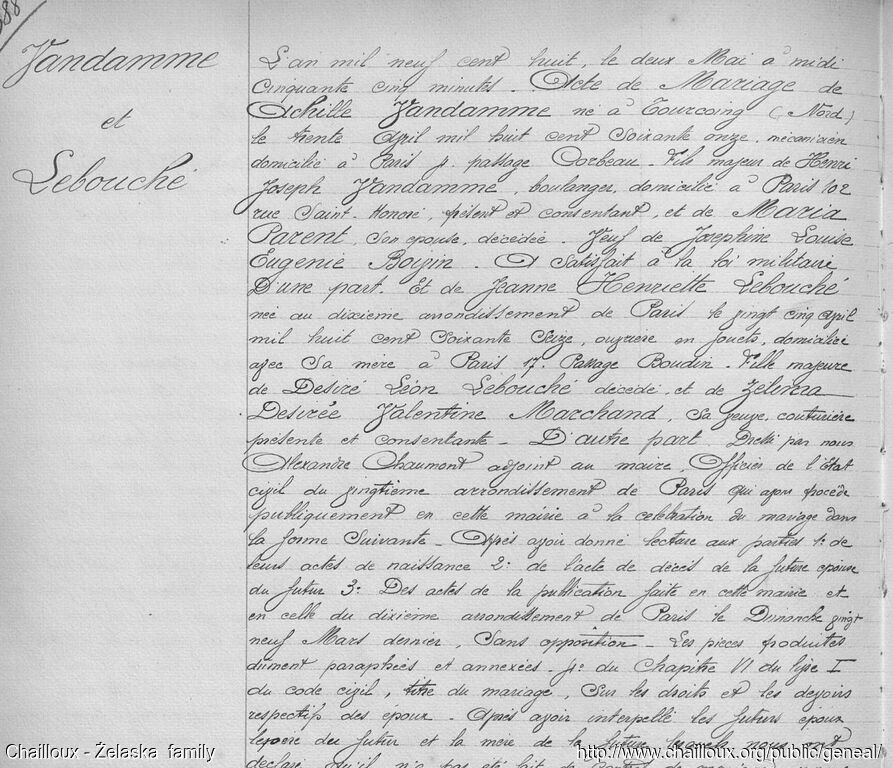 Vandamme
et
Lebouché
L'an mil neuf cent huit, le deux Mai à midi
cinquante cinq minutes. Acte de Mariage de
Achille Vandamme né à Tourcoing (Nord)
le trente Avril mil huit cent soixante onze, mécanicien
domicilié à Paris passage Corbeau. Fils majeur de Henri
Joseph Vandamme, boulanger, domicilié à Paris 102
rue Saint-Honoré, présent et consentant, et de Maria
Parent, son épouse, décédée. Veuf de Joséphine Louise
Eugénie Boyin. A satisfait à la loi militaire
D'une part. Et de Jeanne Henriette Lebouché
née au dixième arrondissement de Paris le vingt cinq avril
mil huit cent soixante seize, ouvrière en jouets, domiciliée
avec sa mère à Paris 17. Passage Boudin. Fille majeure
de Désiré Léon Lebouché décédé, et de Zelima
Desirée Valentine Marchand, sa veuve, couturière
présente et consentante - D'autre part. Dressé par nous
Alexandre Chaumont adjoint au maire, Officier de l'Etat
civil du vingtième arrondissement de Paris qui avons procédé
publiquement en cette mairie à la célébration du mariage dans
la forme suivante - Après avoir donné lecture aux parties 1° de
leurs actes de naissance 2° de l'acte de décès de la future épouse
du futur 3° Des actes de la publication faite en cette mairie et
en celle du dixième arrondissement de Paris le Dimanche vingt
neuf Mars dernier, sans opposition - Les pièces produites
dûment paraphées et annexées. 4° du Chapitre VI du livre I
du code civil, titre du mariage, sur les droits et les devoirs
respectifs des époux - Après avoir interpellé les futurs époux
le père du futur et la mère de la future lesquels nous ont
déclaré qu'il n'a pas été fait de contrat de mariage
Chailloux - Żelaska family
http://www.chailloux.org/public/geneal/